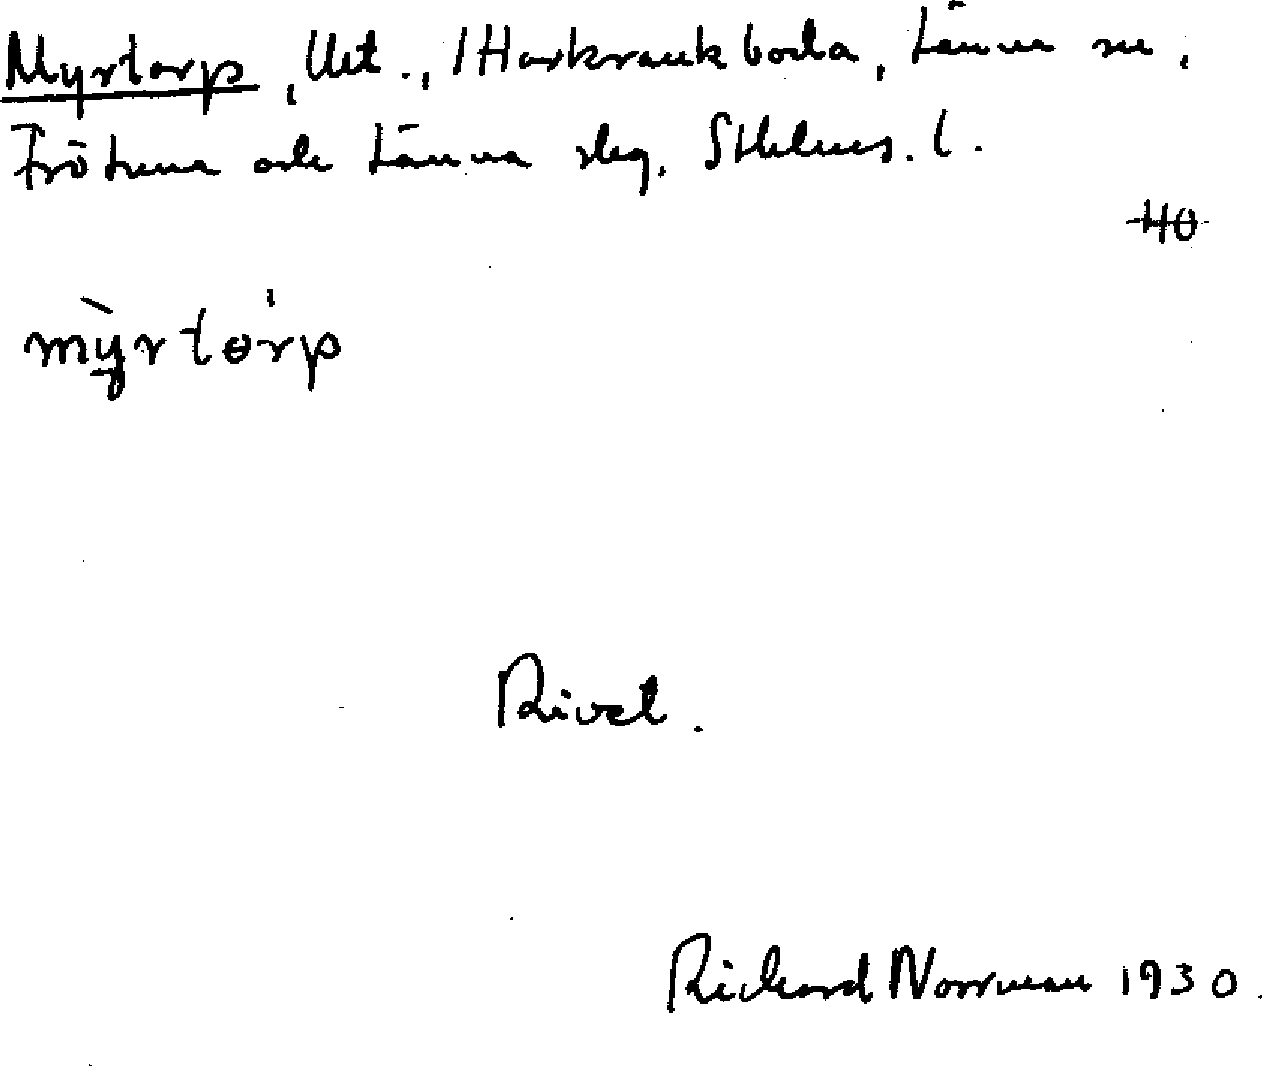 Myrtorp, Utt., 1 Harkrankboda, Länna sn,
Frötuna och Länna skg, Sthlms. l.
40
mỳrtórp
Rivet.
Richard Norrman 1930.